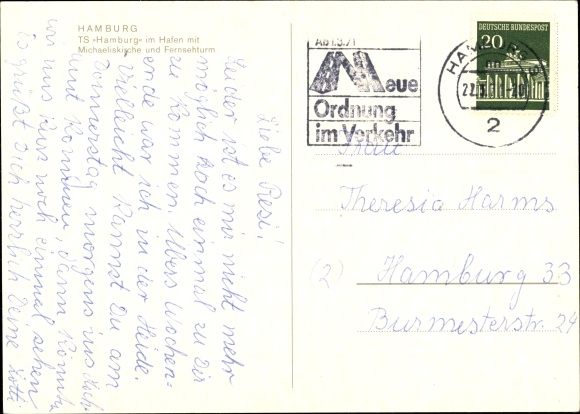 HAMBURG
TS »Hamburg« im Hafen mit
Michaeliskirche und Fernsehturm
Liebe Resi!
Leider ist es mir nicht mehr
möglich noch einmal zu Dir
zu kommen. Übers Wochen=
ende war ich in der Heide.
Vielleicht kannst Du am
Donnerstag morgens ins
amt kommen, dann könnten
wir uns kurz noch einmal sehen
Es grüßt Dich herzlich Deine Lotti
Ab 1.3.71
Neue
Ordnung
im Verkehr
HAMBURG
2
DEUTSCHE BUNDESPOST
20
Theresia Harms
(2) Hamburg 33
Burmesterstr. 24